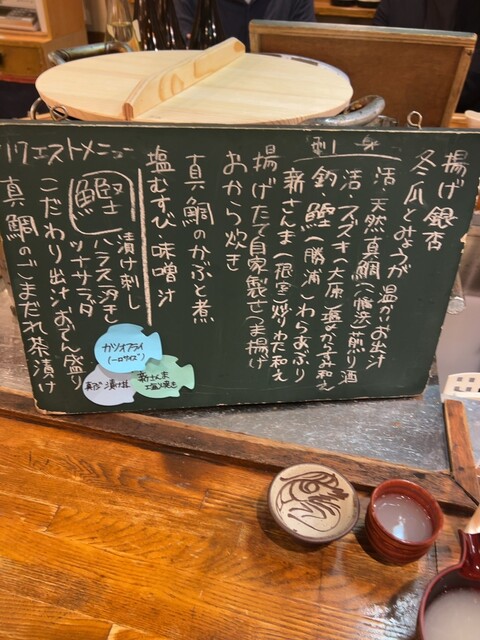 揚げ銀杏
冬瓜とみょうが 温かお出汁
刺身
活・天然真鯛(八幡浜)煎り酒
活・スズキ(大原)
釣 鰹(勝浦)わらあぶり
新さんま(根室)炒りわた和え
揚げたて自家製さつま揚げ
おから炊き
真鯛のかぶと煮
塩むすび 味噌汁
リクエストメニュー
鰹
漬け刺し
ハラス焼き
ツナサラダ
こだわり出汁おでん盛り
真鯛のごまだれ茶漬け
カツオフライ
(一口サイズ)
新さんま
塩焼き
漬け丼